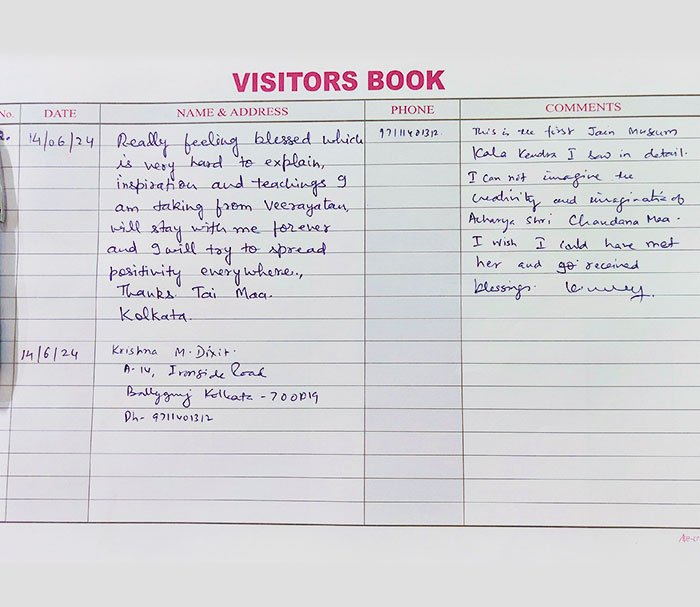 VISITORS BOOK
No. DATE NAME & ADDRESS PHONE COMMENTS
2. 14/06/24
Really feeling blessed which
is very hard to explain,
inspiration and teachings I
am taking from Veerayatan,
will stay with me forever
and I will try to spread
positivity everywhere.,
Thanks Tai Maa.
Kolkata.
9711401312
This is the first Jain Museum
Kala Kendra I saw in detail.
I can not imagine the
creativity and imagination of
Acharya Shri Chandana Maa.
I wish I could have met
her and go received
blessings.
14/6/24
Krishna M. Dixit.
A-14, Ironside Road
Ballygunj Kolkata - 700019
Ph- 9711401312